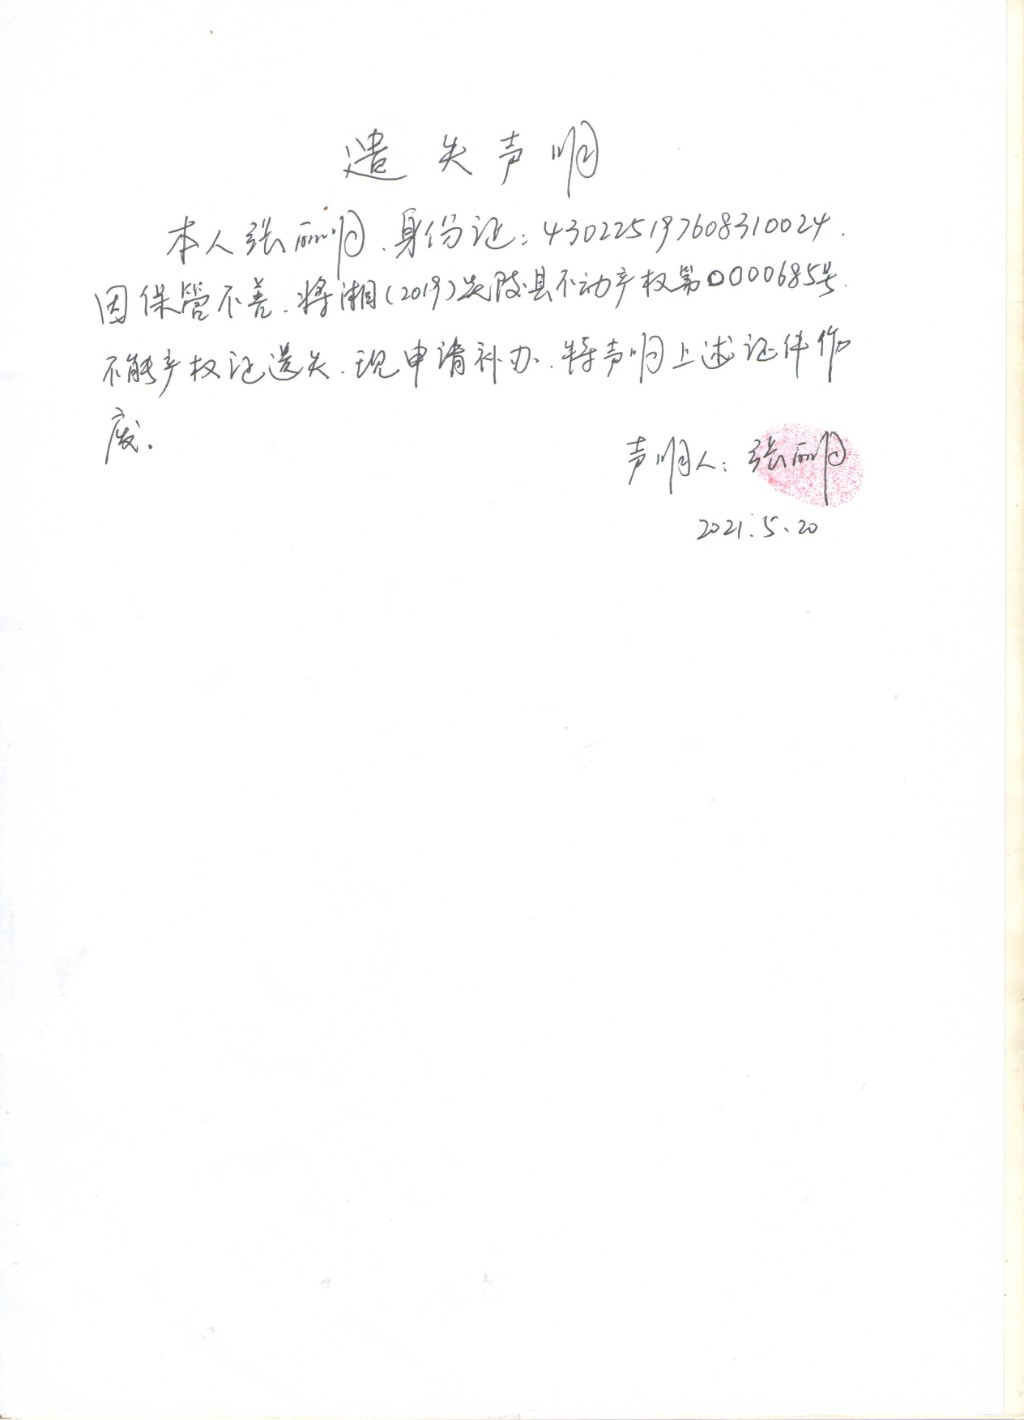 遗失声明
本人张丽明、身份证:430225197608310024.
因保管不善、将湘(2019)炎陵县不动产权第0000685号.
不能产权证遗失、现申请补办、特声明上述证件作
废。
声明人:张丽明
2021.5.20